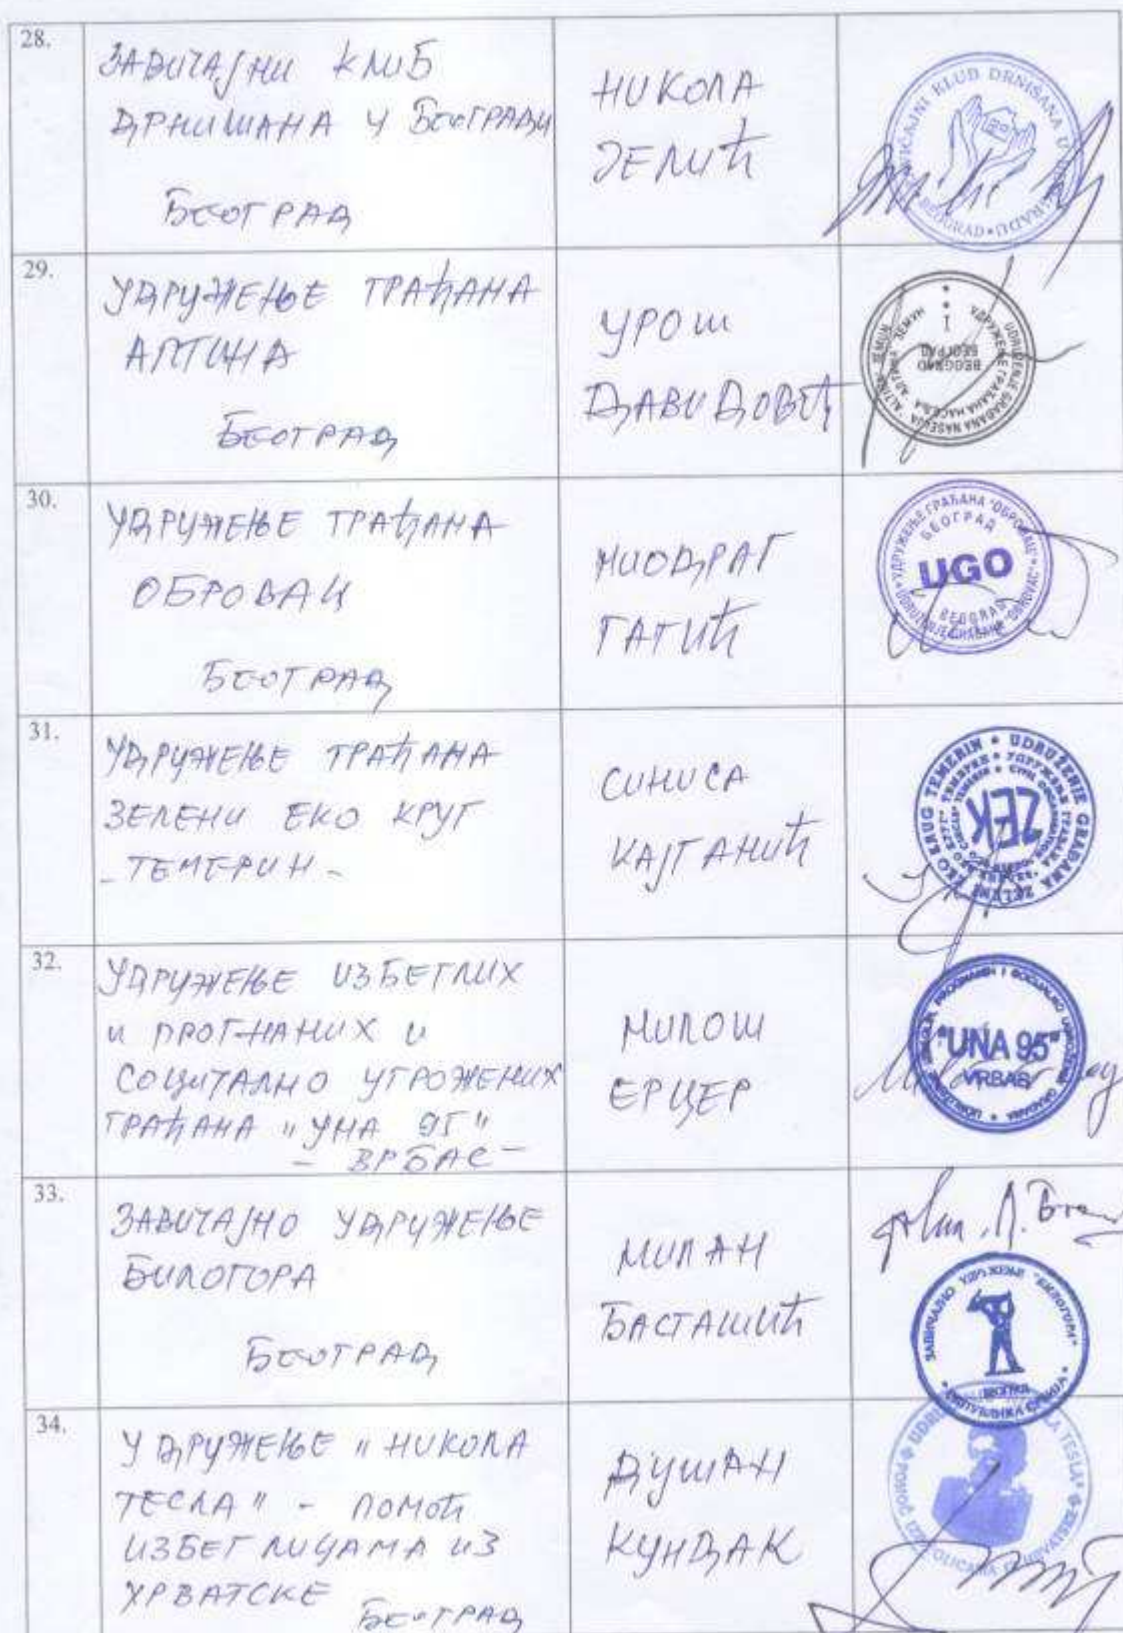 28.
ЗАВИЧАЈНИ КЛУБ
ДРНИШАНА У БЕОГРАДУ
БЕОГРАД
НИКОЛА
ЈЕЛИЋ
ZAVIČAJNI KLUB DRNIŠANA U BEOGRADU
BEOGRAD
29.
УДРУЖЕЊЕ ГРАЂАНА
АЛТИНА
БЕОГРАД
УРОШ
ДАВИДОВИЋ
UDRUŽENJE GRAĐANA NASELJA ALTINA ZEMUN
УДРУЖЕЊЕ ГРАЂАНА НАСЕЉА АЛТИНА ЗЕМУН
BEOGRAD
БЕОГРАД
1
30.
УДРУЖЕЊЕ ГРАЂАНА
ОБРОВАЦ
БЕОГРАД
МИОДРАГ
ГАГИЋ
УДРУЖЕЊЕ ГРАЂАНА "ОБРОВАЦ"
БЕОГРАД
UGO
BEOGRAD
UDRUŽENJE GRAĐANA "OBROVAC"
31.
УДРУЖЕЊЕ ГРАЂАНА
ЗЕЛЕНИ ЕКО КРУГ
- ТЕМЕРИН -
СИНИСА
КАЈГАНИЋ
UDRUŽENJE GRAĐANA ZELENI EKO KRUG TEMERIN
ZEK
32.
УДРУЖЕЊЕ ИЗБЕГЛИХ
И ПРОГНАНИХ И
СОЦИЈАЛНО УГРОЖЕНИХ
ГРАЂАНА "УНА 95"
- ВРБАС -
МИЛОШ
ЕРЦЕГ
"UNA 95"
VRBAS
33.
ЗАВИЧАЈНО УДРУЖЕЊЕ
БИЛОГОРА
БЕОГРАД
МИЛАН
БАСТАШИЋ
ЗАВИЧАЈНО УДРУЖЕЊЕ "БИЛОГОРА"
БЕОГРАД
РЕПУБЛИКА СРБИЈА
34.
УДРУЖЕЊЕ "НИКОЛА
ТЕСЛА" - ПОМОЋ
ИЗБЕГЛИЦАМА ИЗ
ХРВАТСКЕ
БЕОГРАД
ДУШАН
КУНДАК